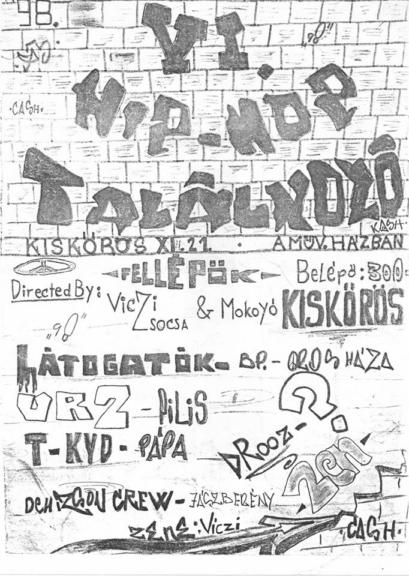 98.
VI.
"98"
CASH
HIP-HOP
TALÁLKOZÓ
KASH
KISKŐRÖS XI. 21. • A MŰV. HÁZBAN
FELLÉPŐK
Belépő: 300
Directed By: VicZi Zsocsa & Mokoyó
KISKŐRÖS
"98"
LÁTOGATÓK - BP. - OROSHÁZA
URZ - PILIS
T-KYD - PÁPA
DROOZ - ?
ZEN
CREW - JÁSZBERÉNY
ZENE: Viczi
CASH